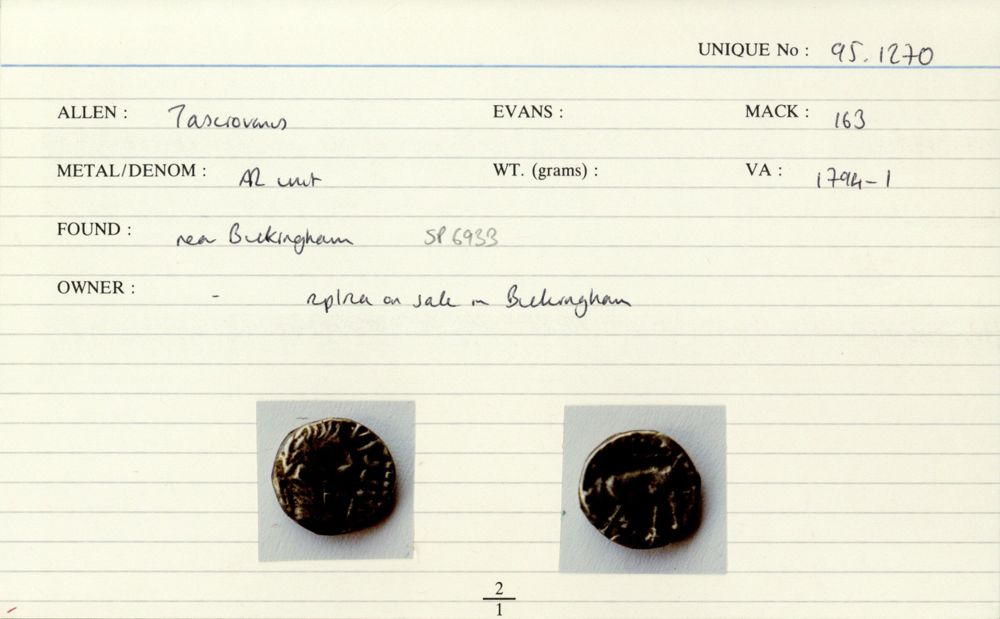 UNIQUE No : 95.1270
ALLEN : Tasciovanus EVANS : MACK : 163
METAL/DENOM : AR unit WT. (grams) : VA : 1794-1
FOUND : near Buckingham SP 6933
OWNER : - replica on sale in Buckingham
2
1